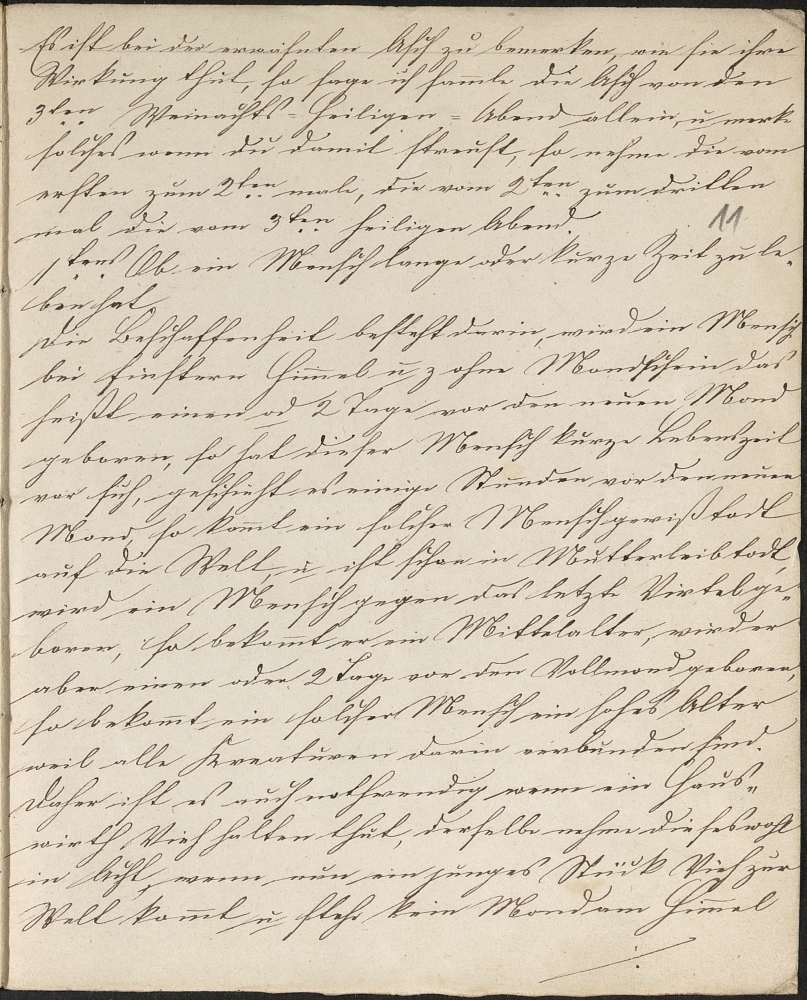 Es ist bei der erwähnten Asch zu bemerken, wie sie ihre
Wirkung thut, so sage ich samle die Asch von den
3ten Weinachts = heiligen = Abend allein, u merke
solches wenn du damit streust, so nehme die vom
ersten zum 2ten male, die vom 2ten zum dritten
mal die vom 3ten heiligen Abend.
11
1tens Ob ein Mensch lange oder kurze Zeit zu le„
ben hat
Die Beschaffenheit besteht darin, wird ein Mensch
bei finstern Himel u z ohne Mondschein das
heißt einen od 2 Tage vor den neuen Mond
geboren, so hat dieser Mensch kurze Lebenszeit
vor sich, geschieht es einige Stunden vor den neuen
Mond, so komt ein solcher Mensch gewiß todt
auf die Welt, u ist schon in Mutterleib todt
wird ein Mensch gegen das letzte Virtel ge„
boren, so bekomt er ein Mittelalter, wird er
aber einen oder 2 Tage vor den Vollmond geboren,
so bekomt ein solcher Mensch ein hohes Alter
weil alle Kreaturen darin verbunden sind.
Daher ist es auch nothwendig wenn ein Haus„
wirth Vieh halten thut, derselbe nehme dieses wohl
in Acht, wenn nun ein junges Stück Vieh zur
Welt komt u steh kein Mond am Himel
./.